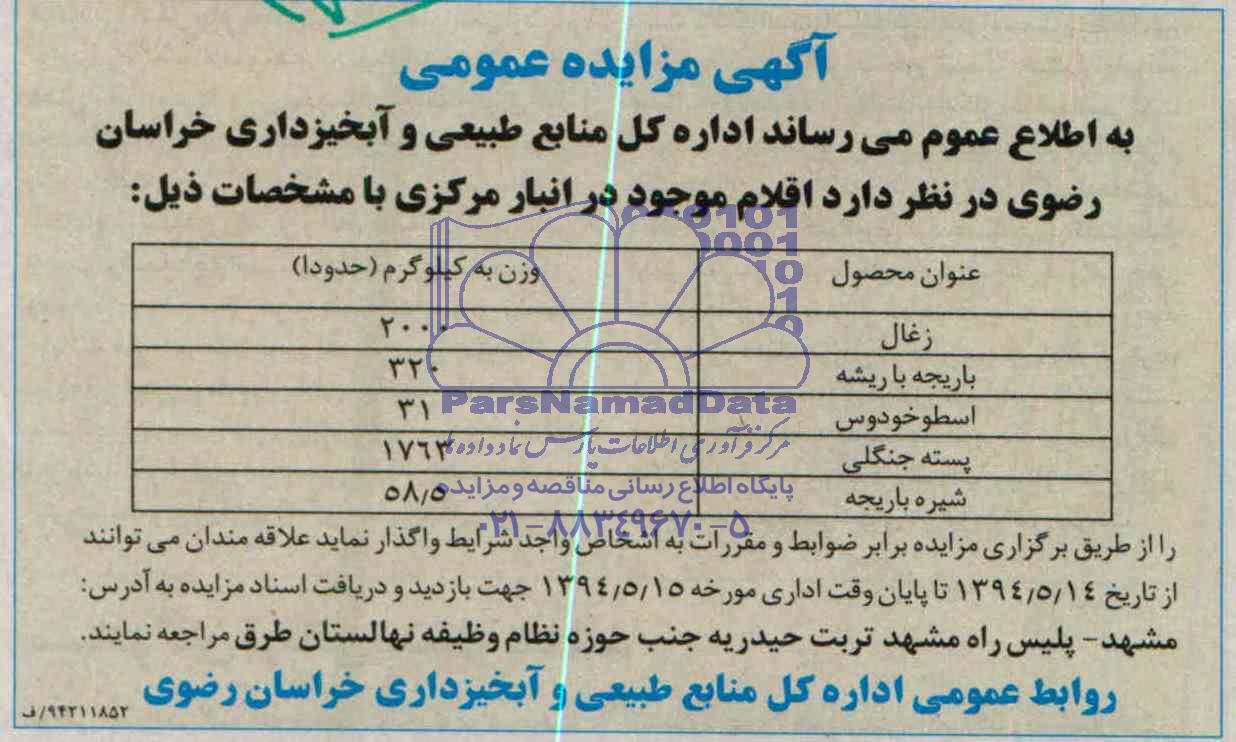 آگهی مزایده عمومی
به اطلاع عموم می رساند اداره کل منابع طبیعی و آبخیزداری خراسان
رضوی در نظر دارد اقلام موجود در انبار مرکزی با مشخصات ذیل:
عنوان محصول وزن به کیلوگرم (حدودا)
زغال ۲۰۰۰
باریجه با ریشه ۳۲۰
اسطوخودوس ۳۱
پسته جنگلی ۱۷۶۳
شیره باریجه ۵۸٫۵
ParsNamadData
مرکز فرآوری اطلاعات پارس نماد داده ها
پایگاه اطلاع رسانی مناقصه و مزایده
۰۲۱-۸۸۳۴۹۶۷۰-۵
را از طریق برگزاری مزایده برابر ضوابط و مقررات به اشخاص واجد شرایط واگذار نماید علاقه مندان می توانند
از تاریخ ۱۳۹۴/۵/۱۴ تا پایان وقت اداری مورخه ۱۳۹۴/۵/۱۵ جهت بازدید و دریافت اسناد مزایده به آدرس:
مشهد- پلیس راه مشهد تربت حیدریه جنب حوزه نظام وظیفه نهالستان طرق مراجعه نمایند.
روابط عمومی اداره کل منابع طبیعی و آبخیزداری خراسان رضوی
۹۴۲۱۱۸۵۲/ف